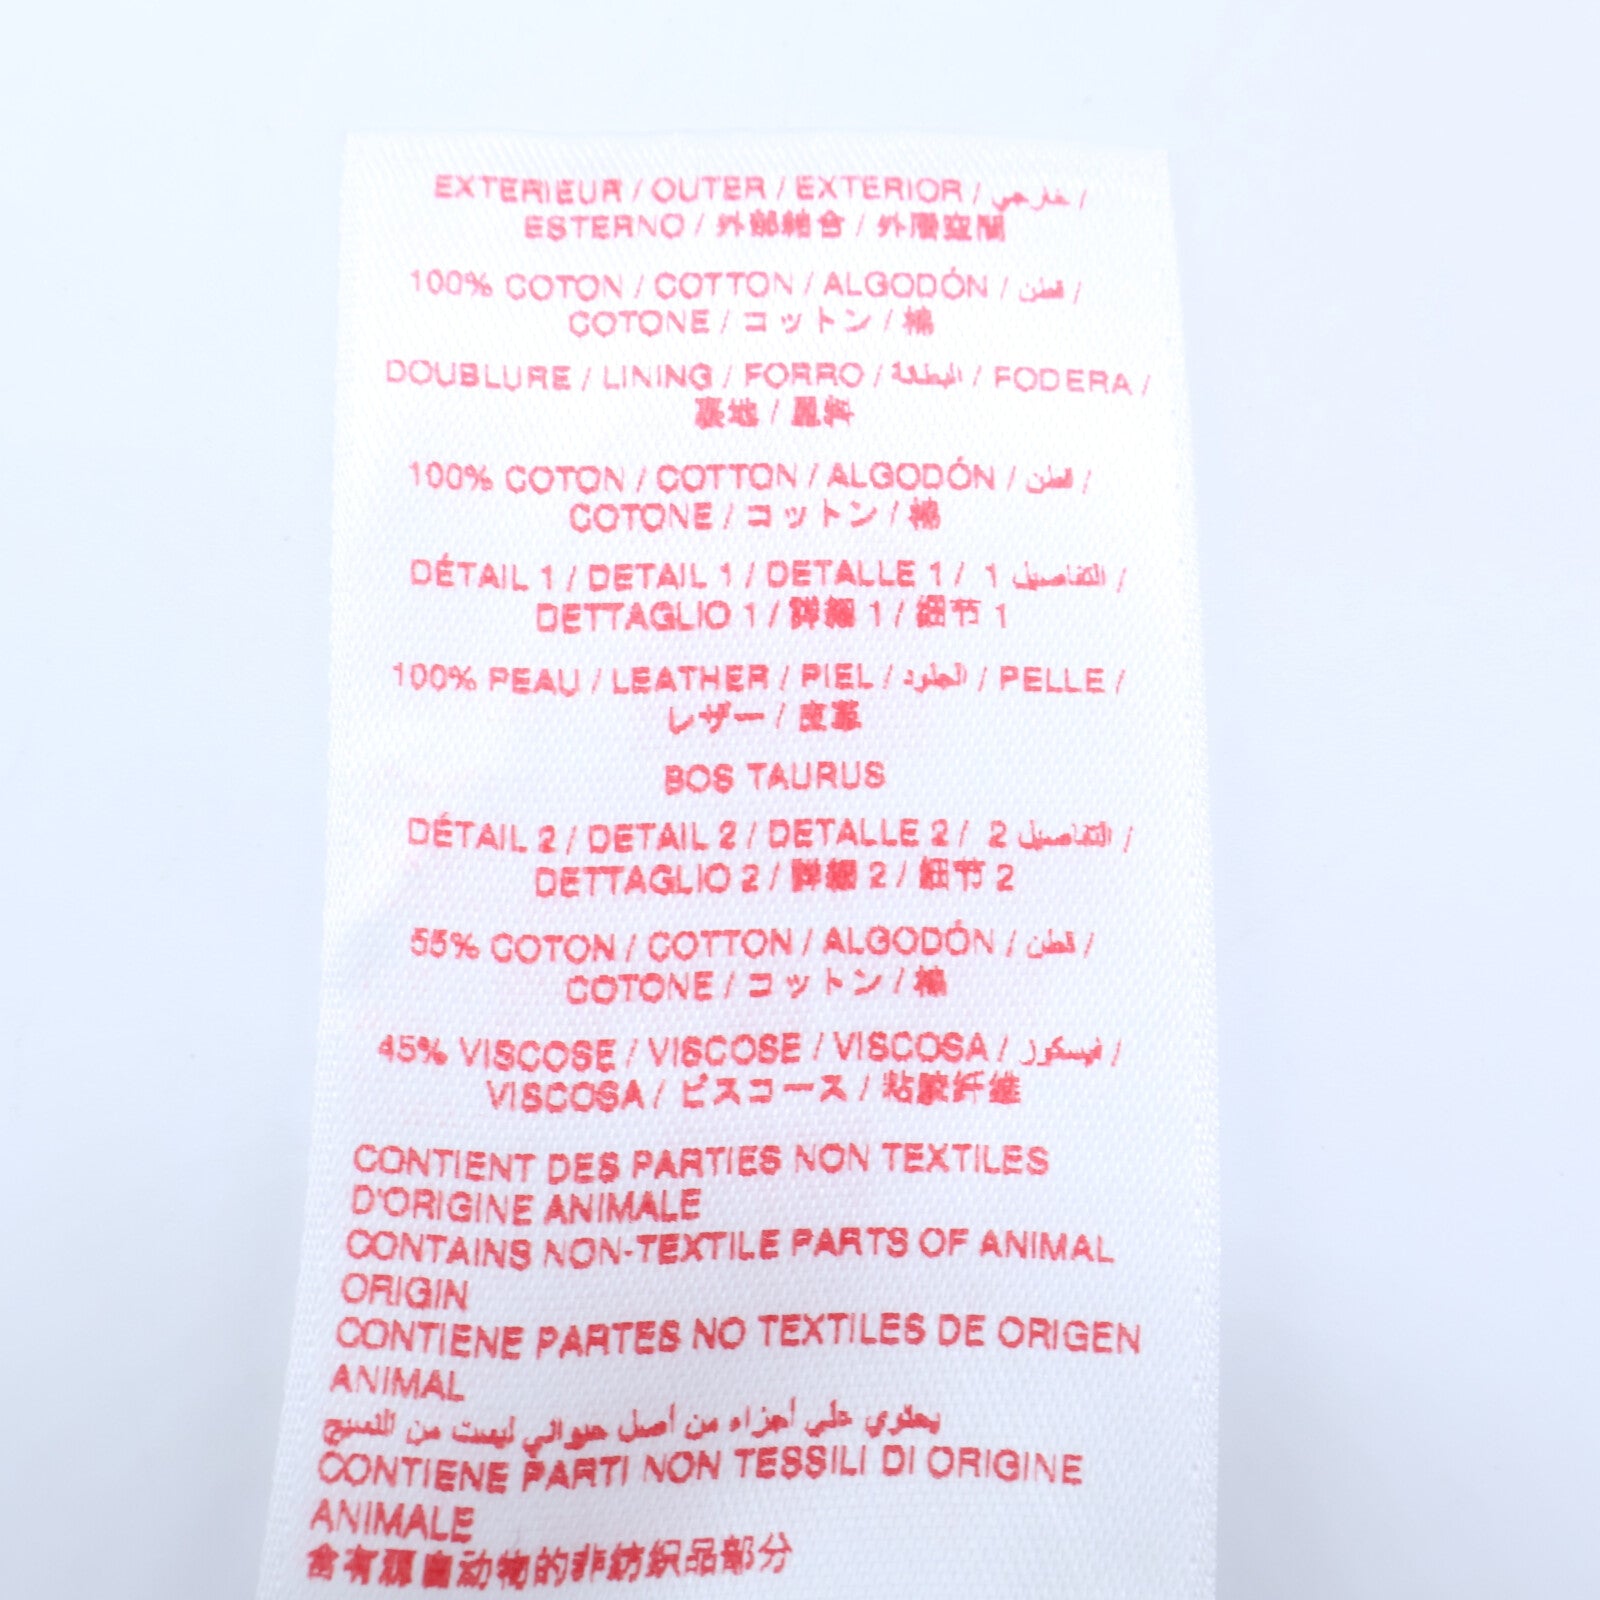 EXTERIEUR / OUTER / EXTERIOR / خارجي /
ESTERNO / 外部結合 / 外層空間
100% COTON / COTTON / ALGODÓN / قطن /
COTONE / コットン / 棉
DOUBLURE / LINING / FORRO / البطانة / FODERA /
裏地 / 里料
100% COTON / COTTON / ALGODÓN / قطن /
COTONE / コットン / 棉
DÉTAIL 1 / DETAIL 1 / DETALLE 1 / 1 التفاصيل /
DETTAGLIO 1 / 詳細 1 / 细节 1
100% PEAU / LEATHER / PIEL / الجلود / PELLE /
レザー / 皮革
BOS TAURUS
DÉTAIL 2 / DETAIL 2 / DETALLE 2 / 2 التفاصيل /
DETTAGLIO 2 / 詳細 2 / 细节 2
55% COTON / COTTON / ALGODÓN / قطن /
COTONE / コットン / 棉
45% VISCOSE / VISCOSE / VISCOSA / فيسكوز /
VISCOSA / ビスコース / 粘胶纤维
CONTIENT DES PARTIES NON TEXTILES
D'ORIGINE ANIMALE
CONTAINS NON-TEXTILE PARTS OF ANIMAL
ORIGIN
CONTIENE PARTES NO TEXTILES DE ORIGEN
ANIMAL
يحتوي على أجزاء من أصل حيواني ليست من النسيج
CONTIENE PARTI NON TESSILI DI ORIGINE
ANIMALE
含有源自动物的非纺织品部分